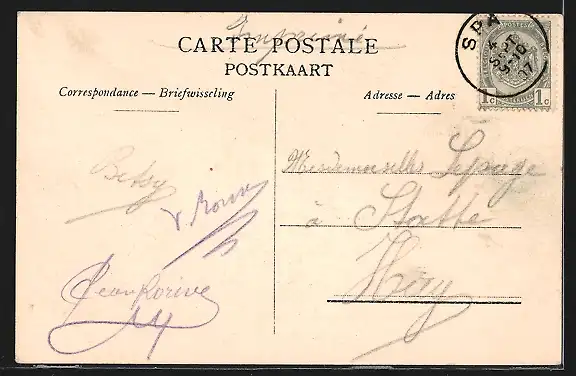 Imprimé
CARTE POSTALE
POSTKAART
Correspondance — Briefwisseling
Adresse — Adres
SPA
4
SEPT
07
1c 1c
Mesdemoiselles Lepage
à Statte
Huy
Betsy